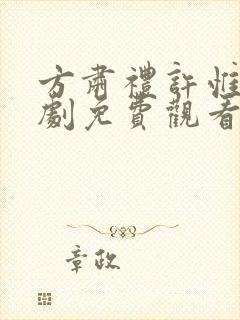 方肅禮許惟
劇免費觀看
章政